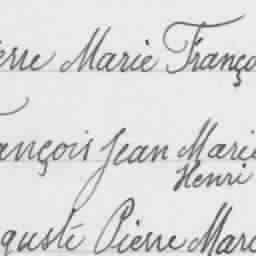 erre Marie Franço
ançois Jean Marie
Henri
guste Pierre Mari